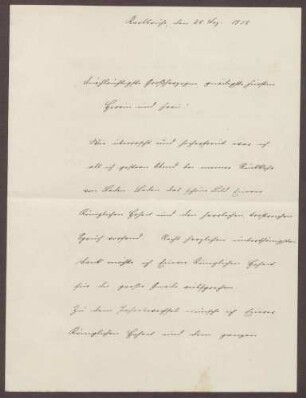 Karlsruhe den 28 Dez. 1918
Durchlauchtigste Großherzogin gnädigste Fürstin
Herrin und Frau!
Wie überrascht und hocherfreut war ich
als ich gestern Abend bei meiner Rückkehr
von Baden-Baden das schöne Bild Eurer
Königlichen Hoheit und den herrlichen
Spruch vorfand. Recht herzlichen unterthänigsten
Dank möchte ich Eurer Königlichen Hoheit
für die große Gnade aussprechen
Zu dem Jahreswechsel wünsche ich Eurer
Königlichen Hoheit und dem ganzen